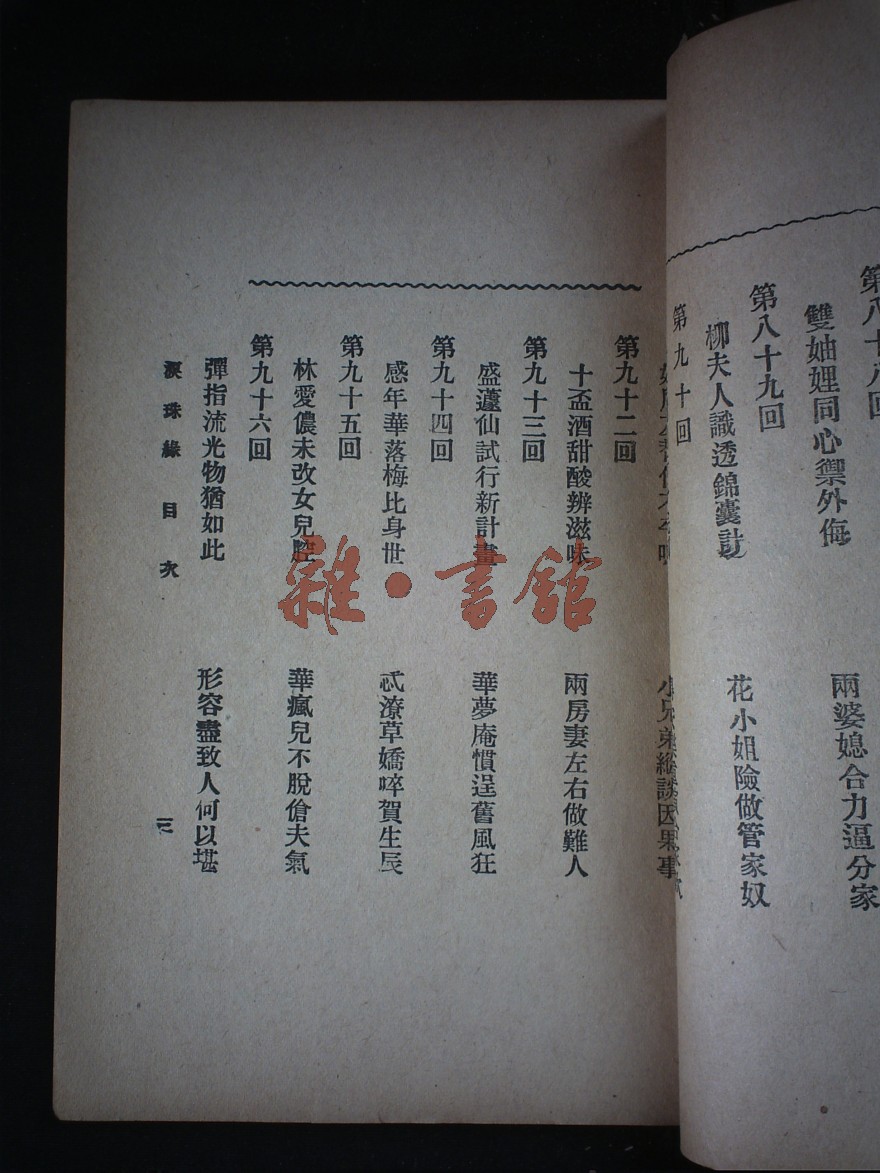 第八十八回
雙妯娌同心禦外侮 兩婆媳合力逼分家
第八十九回
柳夫人識透錦囊計 花小姐險做管家奴
第九十回
小兄弟縱談因果事
第九十二回
十盃酒甜酸辨滋味 兩房妻左右做難人
第九十三回
盛蘧仙試行新計畫 華夢庵慣逞舊風狂
第九十四回
感年華落梅比身世 祝潦草嬌啐賀生辰
第九十五回
林愛儂未改女兒腔 華瘋兒不脫傖夫氣
第九十六回
彈指流光物猶如此 形容盡致人何以堪
淚珠緣 目次 三
雜·書館